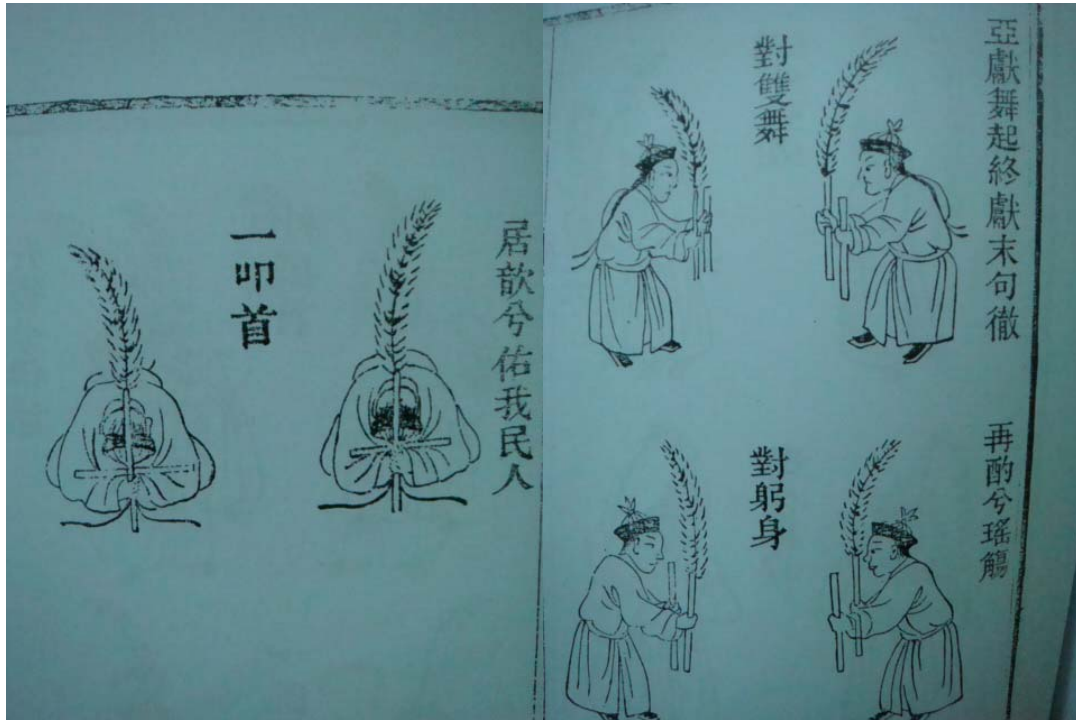 亞獻舞起終獻末句徹
對雙舞
再酌兮瑤觴
對躬身
居歆兮佑我民人
一叩首